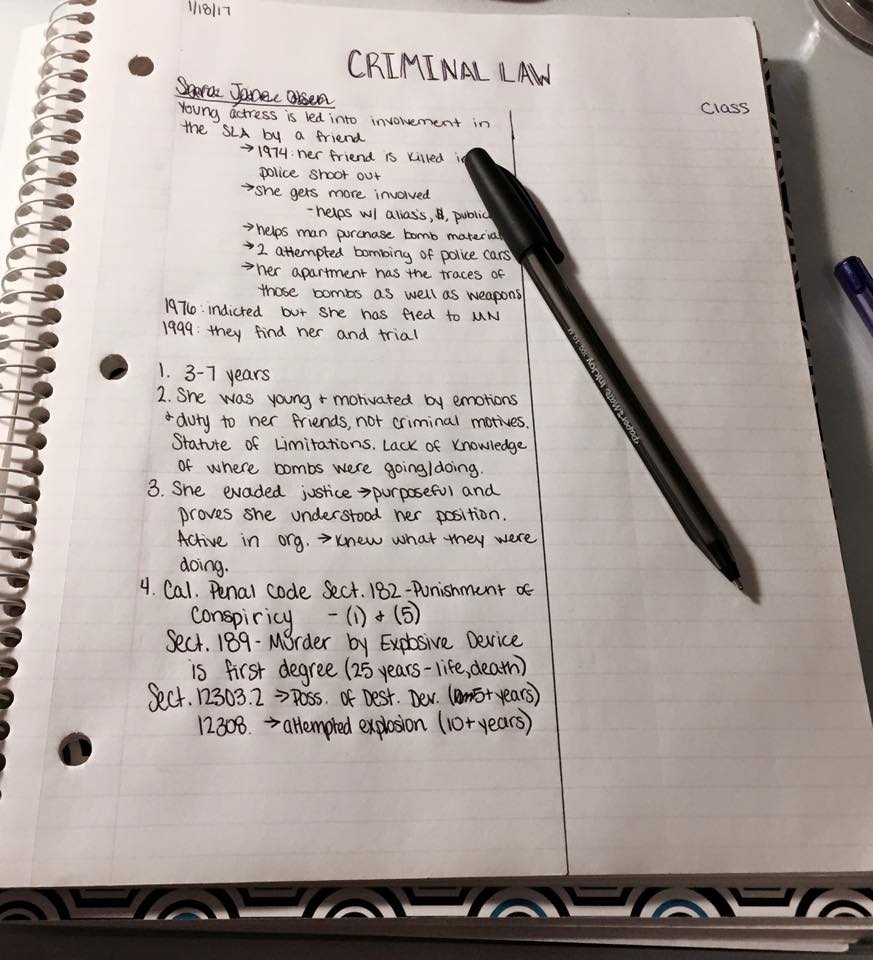 1/18/17
CRIMINAL LAW
Class
Sara Jane Olsen
Young actress is led into involvement in
the SLA by a friend
→1974: her friend is killed in
police shoot out
→she gets more involved
-helps w/ alias's, $, public
→helps man purchase bomb material
→2 attempted bombing of police cars
→her apartment has the traces of
those bombs as well as weapons
1976: indicted but she has fled to MN
1999: they find her and trial
1. 3-7 years
2. She was young + motivated by emotions
+ duty to her friends, not criminal motives.
Statute of Limitations. Lack of Knowledge
of where bombs were going/doing.
3. She evaded justice →purposeful and
proves she understood her position.
Active in org. →knew what they were
doing.
4. Cal. Penal Code Sect. 182 -Punishment of
Conspiricy - (1) + (5)
Sect. 189 - Murder by Explosive Device
is first degree (25 years-life, death)
Sect. 12303.2 →Poss. of Dest. Dev. (5+ years)
12308. →attempted explosion (10+ years)
paper mate InkJoy 100 1.0M